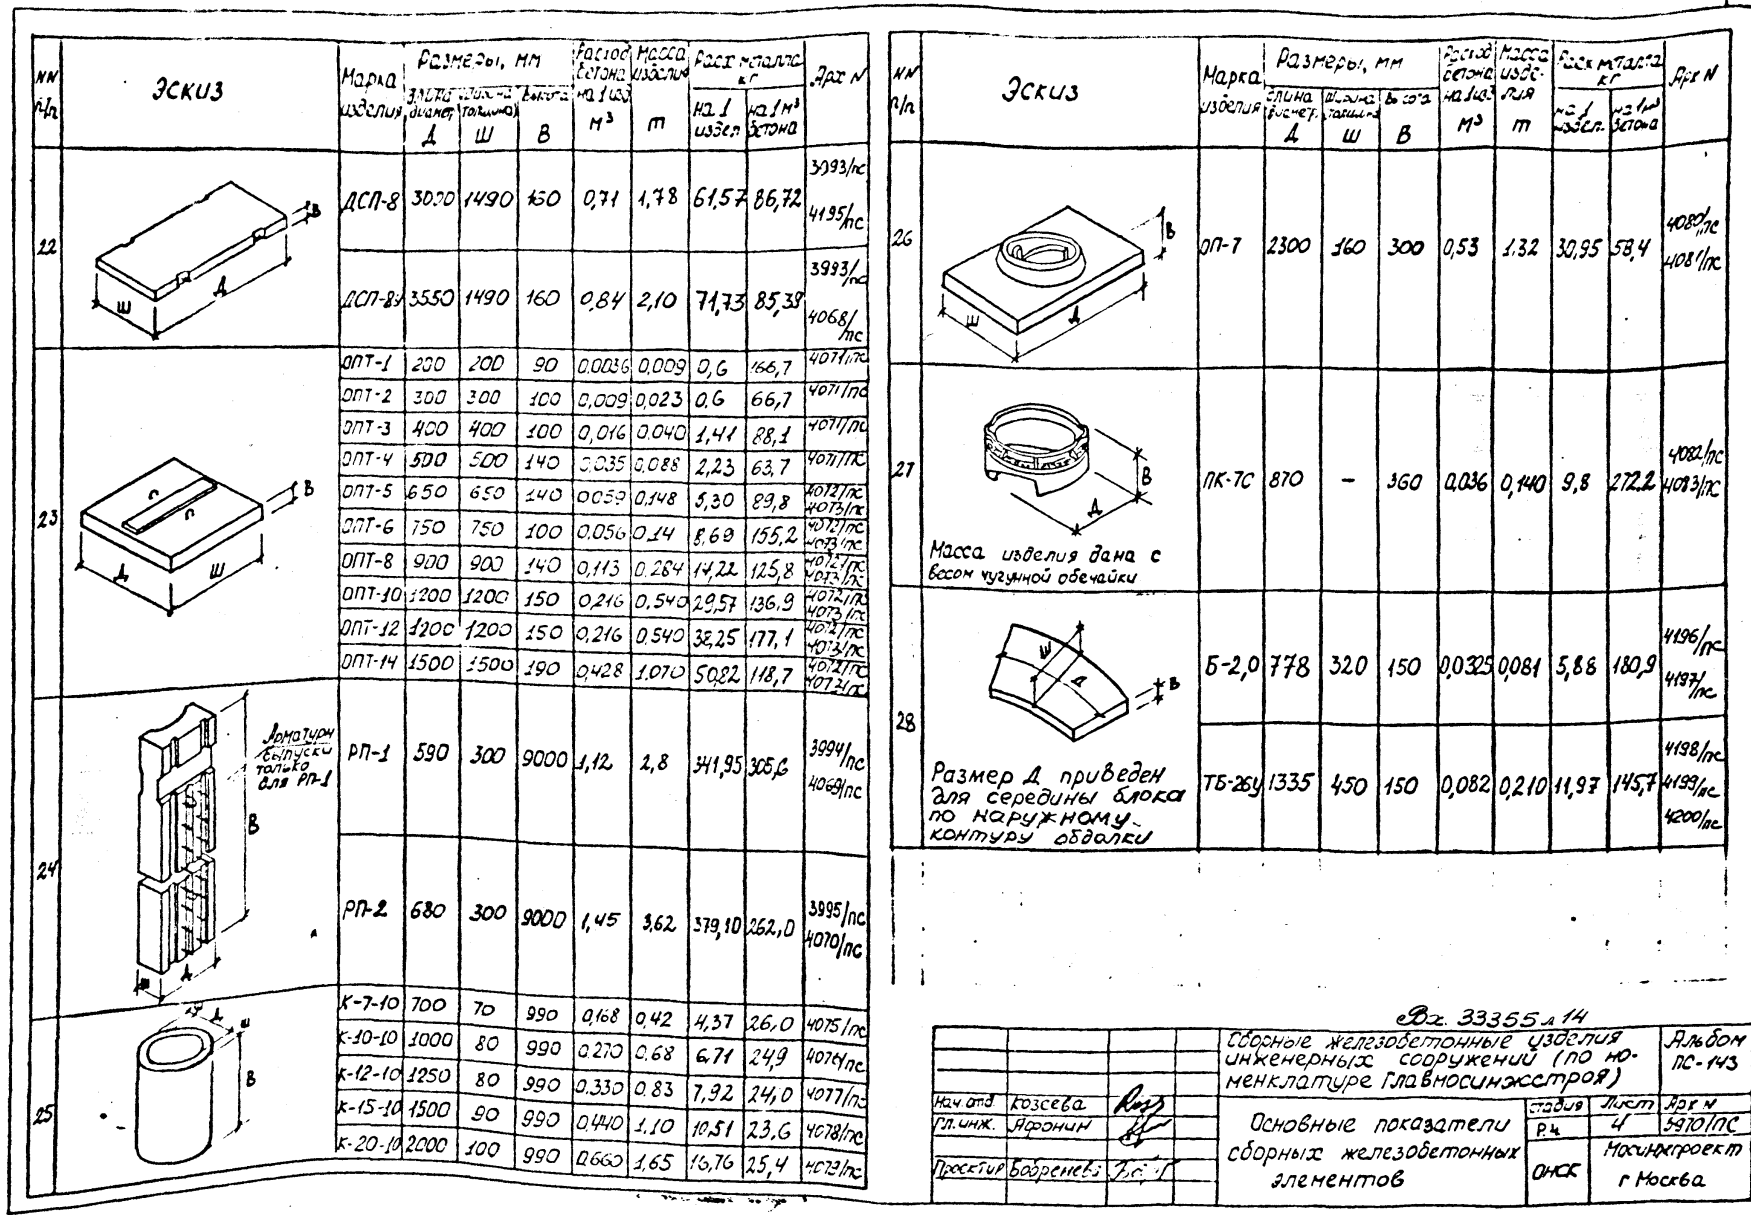 NN п/п ЭСКИЗ Марка изделия Размеры, мм Расход бетона на 1 изд. Масса изделия Расх. металла кг Арх N
длина диамет. Д ширина толщина Ш высота В м³ т на 1 издел на 1 м³ бетона
22
В
Ш
Д
ДСП-8 3000 1490 160 0,71 1,78 61,57 86,72 3993/пс 4195/пс
3550 1490 160 0,84 2,10 71,73 85,39 3993/пс 4068/пс
23
В
Д
Ш
ОПТ-1 200 200 90 0,0036 0,009 0,6 166,7 4071/пс
ОПТ-2 300 300 100 0,009 0,023 0,6 66,7 4071/пс
ОПТ-3 400 400 100 0,016 0,040 1,41 88,1 4071/пс
ОПТ-4 500 500 140 0,035 0,088 2,23 63,7 4071/пс
ОПТ-5 650 650 140 0,059 0,148 5,30 89,8 4072/пс 4073/пс
ОПТ-6 750 750 100 0,056 0,14 8,69 155,2 4072/пс 4073/пс
ОПТ-8 900 900 140 0,113 0,284 14,22 125,8 4072/пс 4073/пс
ОПТ-10 1200 1200 150 0,216 0,540 29,57 136,9 4072/пс 4073/пс
ОПТ-12 1200 1200 150 0,216 0,540 38,25 177,1 4072/пс 4073/пс
ОПТ-14 1500 1500 190 0,428 1,070 50,82 118,7 4072/пс
24
Арматурн
выпуски
только
для РП-1
В
Ш
Д
РП-1 590 300 9000 1,12 2,8 341,95 305,6 3994/пс 4069/пс
РП-2 680 300 9000 1,45 3,62 379,10 262,0 3995/пс 4070/пс
25
Д
Ш
В
К-7-10 700 70 990 0,168 0,42 4,37 26,0 4075/пс
К-10-10 1000 80 990 0,270 0,68 6,71 24,9 4076/пс
К-12-10 1250 80 990 0.330 0.83 7,92 24,0 4077/пс
К-15-10 1500 90 990 0,440 1.10 10,51 23,6 4078/пс
К-20-10 2000 100 990 0.660 1,65 16,76 25,4 4079/пс
NN п/п ЭСКИЗ Марка изделия Размеры, мм Расход бетона на 1 изд Масса изделия Расх металла кг Арх N
длина диамет. Д ширина толщина Ш высота В м³ т на 1 издел. на 1 м³ бетона
26
В
Ш
Д
ОП-7 2300 160 300 0,53 1.32 30,95 58,4 4080/пс 4081/пс
27
В
Д
Масса изделия дана с
весом чугунной обечайки
ПК-7С 870 – 360 0,036 0,140 9,8 272,2 4082/пс 4083/пс
28
Ш
Д
В
Размер Д приведен
для середины блока
по наружному
контуру обделки
Б-2,0 778 320 150 0,0325 0,081 5,88 180,9 4196/пс 4197/пс
ТБ-26у 1335 450 150 0,082 0,210 11,97 145,7 4198/пс 4199/пс 4200/пс
Вх. 33355 л 14
Сборные железобетонные изделия
инженерных сооружений (по но-
менклатуре Главмосинжстроя)
Альбом
ПС-143
Нач.отд Козеева
Гл.инж. Афонин
Проектир Бобренева
Основные показатели
сборных железобетонных
элементов
стадия Лист Арх N
Р.Ч 4 3970/ПС
ОНСК
Мосинжпроект
г Москва